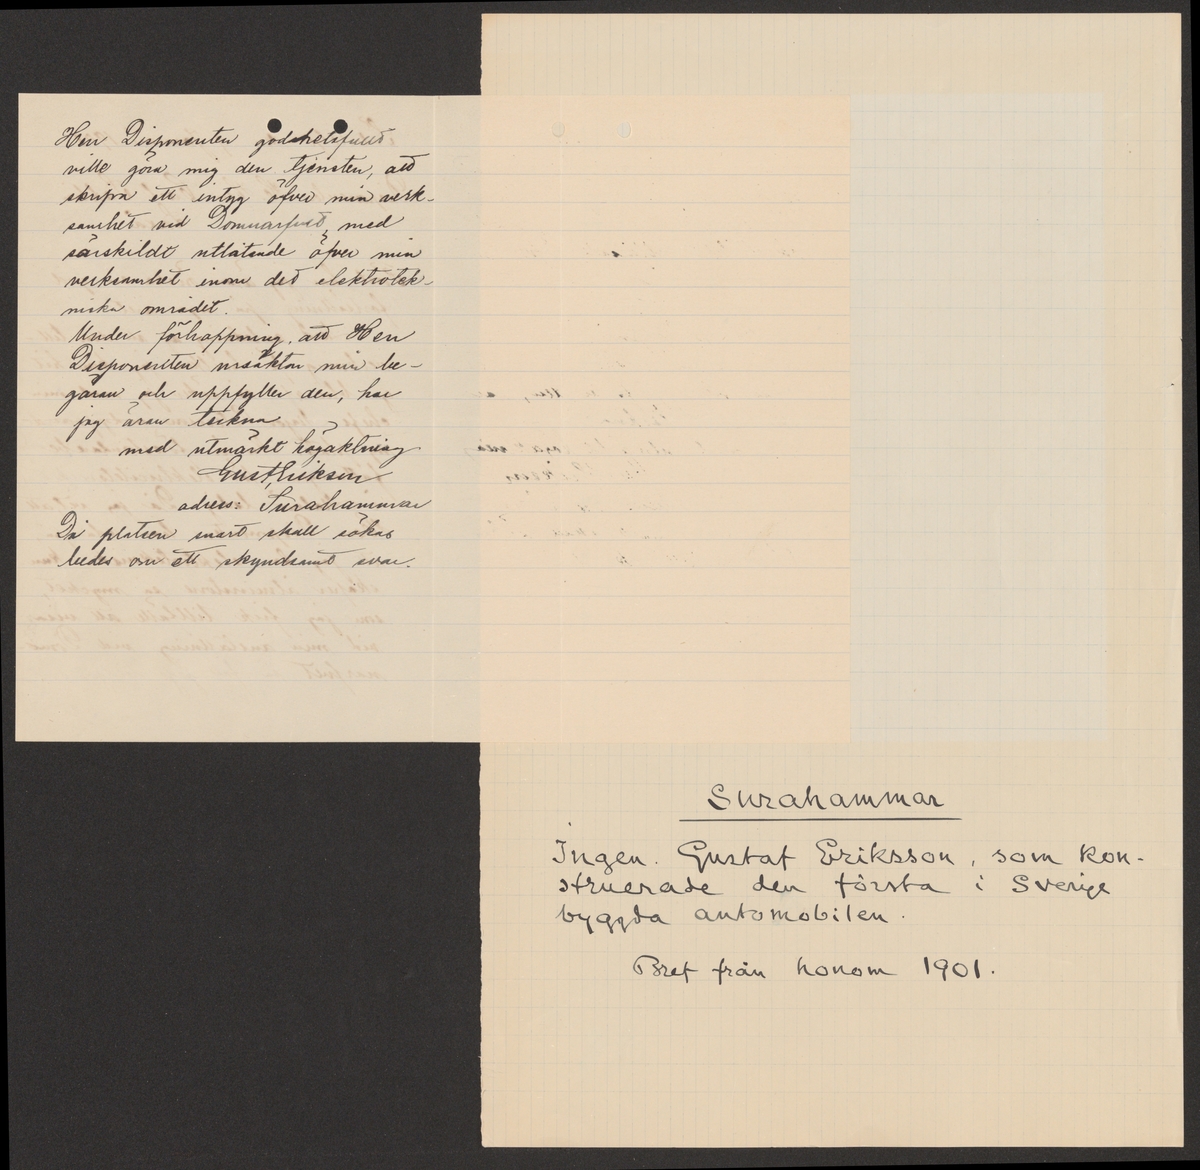 Herr Disponenten godhetsfullt
ville göra mig den tjensten, att
skrifva ett intyg öfver min verk-
samhet vid Domnarfvet, med
särskildt utlåtande öfver min
verksamhet inom det elektrotek-
niska området.
Under förhoppning, att Herr
Disponenten ursäktar min be-
gäran och uppfyller den, har
jag äran teckna
med utmärkt högaktning
Gust. Erikson
adress: Surahammar
Då platsen snart skall sökas
bedes om ett skyndsamt svar.
Surahammar
Ingen. Gustaf Eriksson, som kon-
struerade den första i Sverige
byggda automobilen.
Bref från honom 1901.